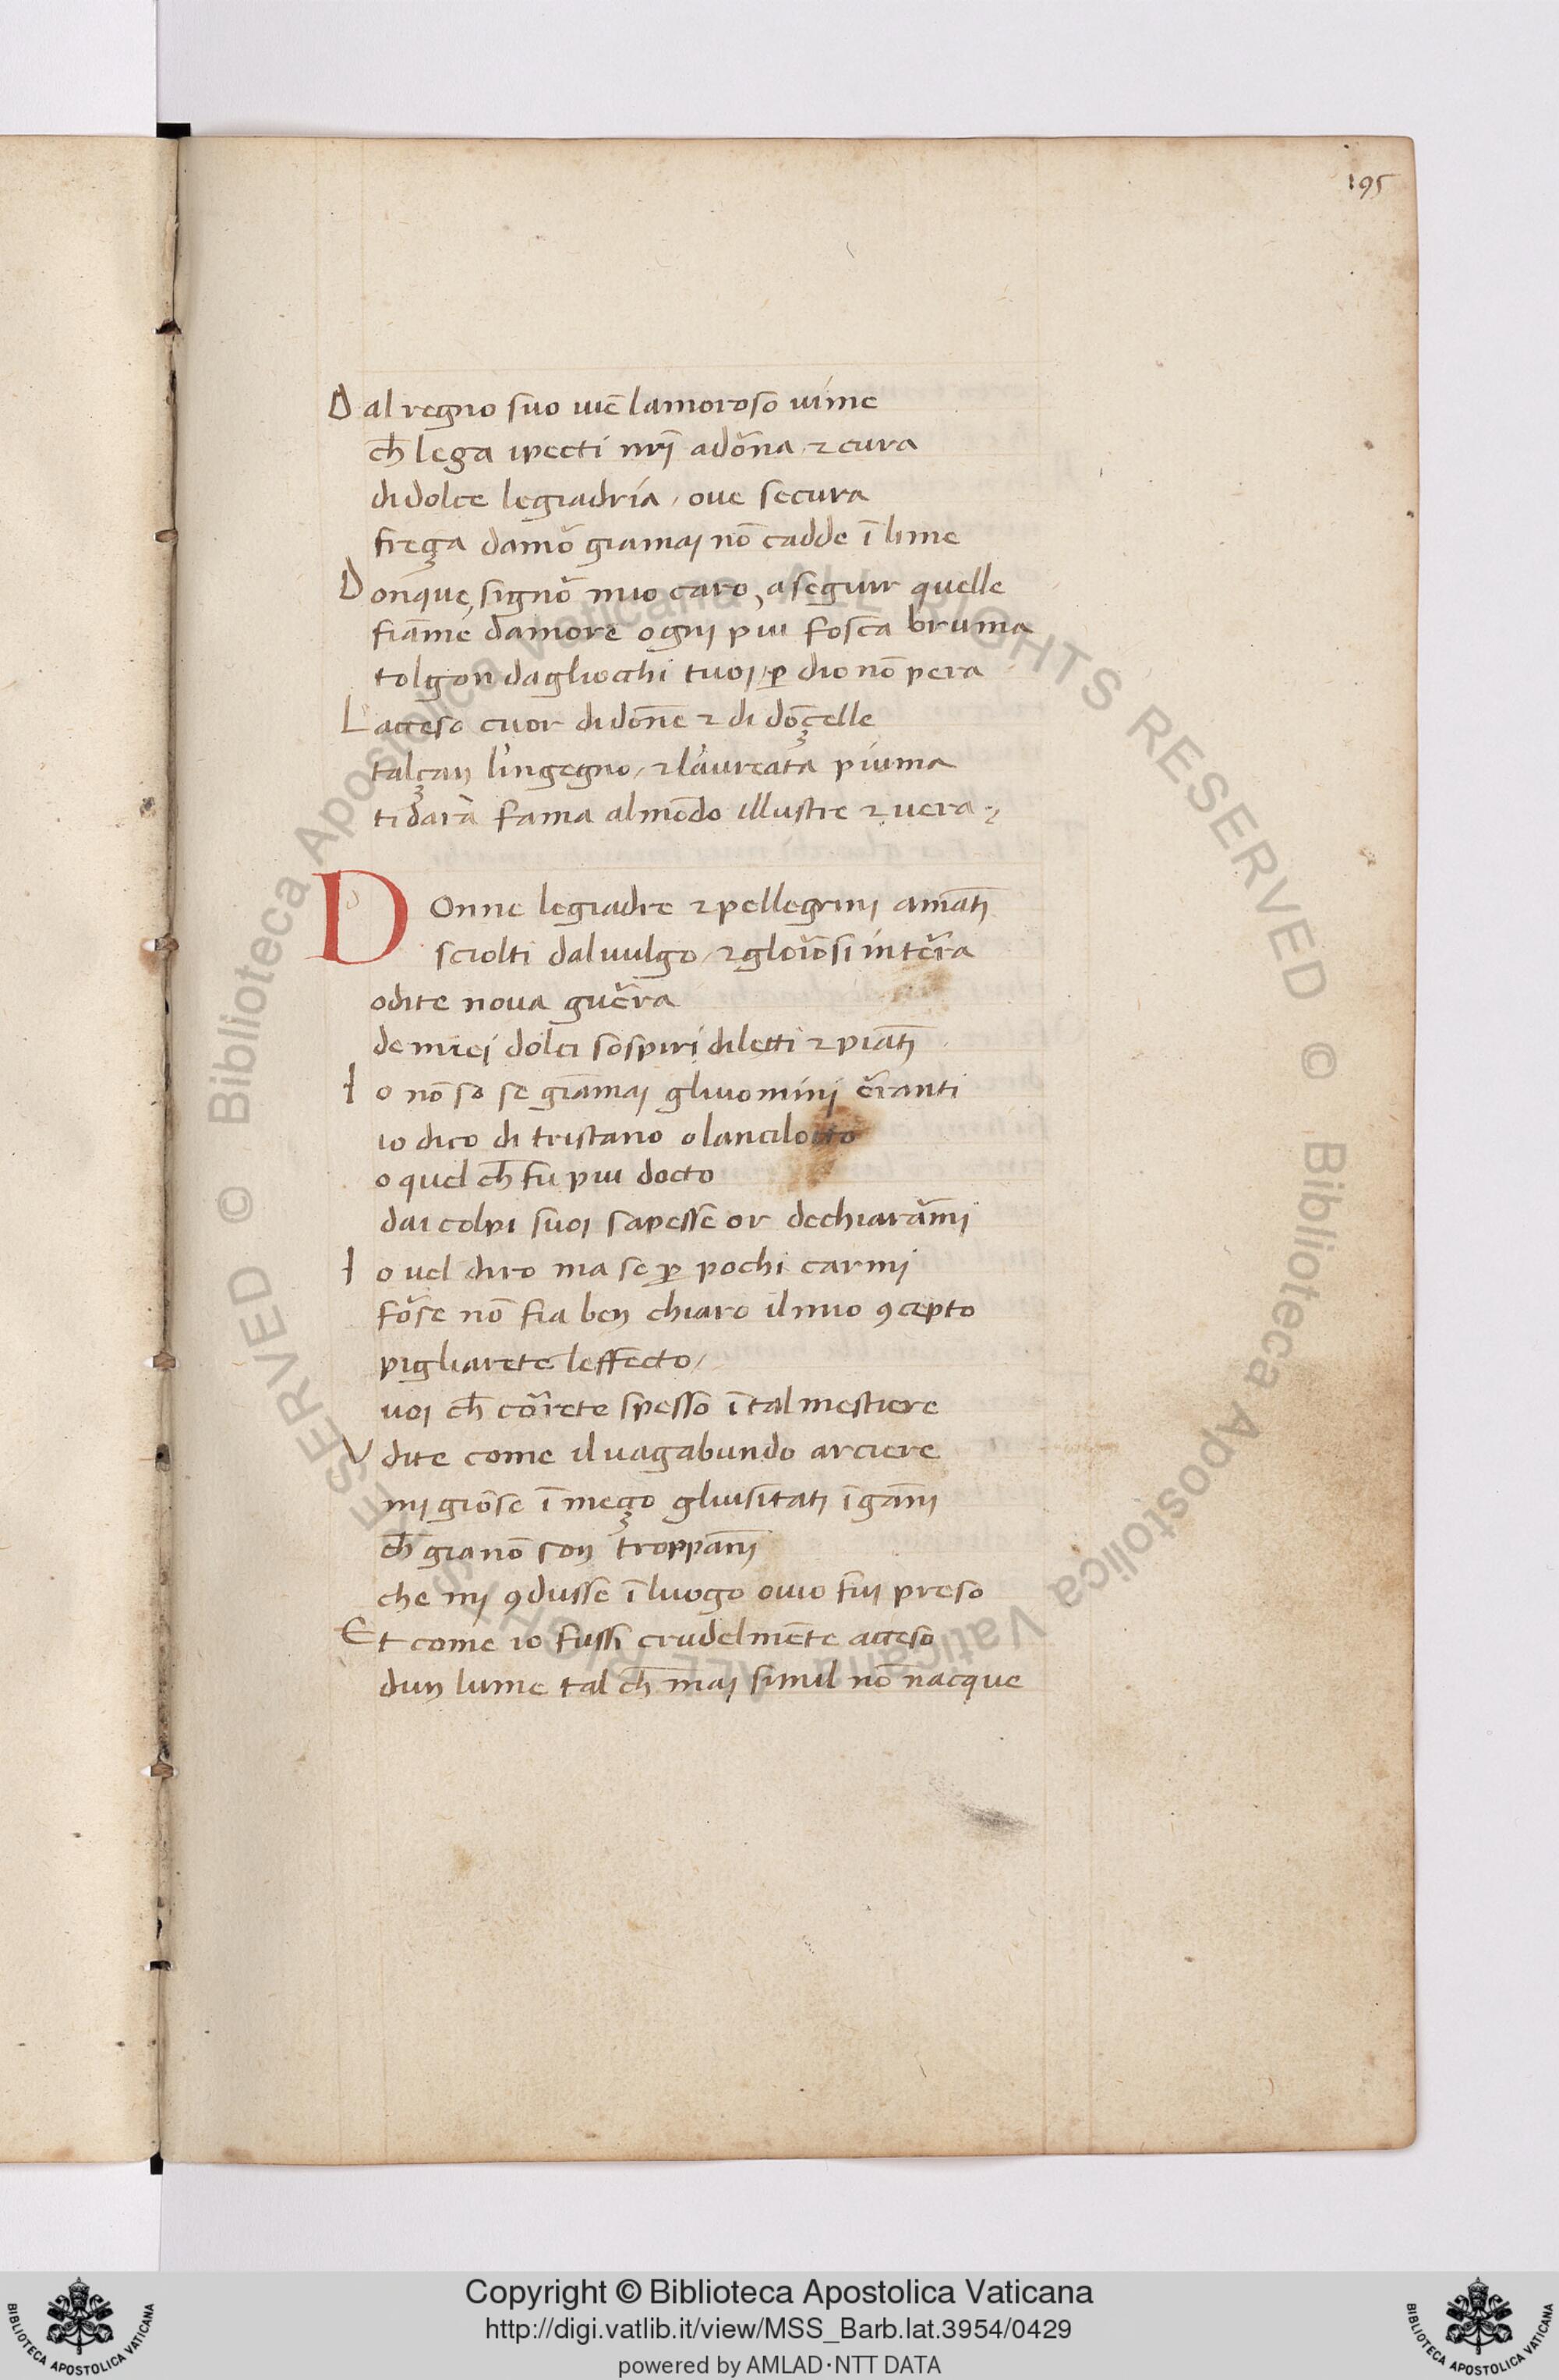 195
Dal regno suo uiē lamoroso uime
ch̄ lega ipecti nr̄i adōna ⁊ cura
didolce legiadria / oue secura
freça damor̄ giamaj nō cadde ī lime
Donque, signor̄ mio caro, aseguir quelle
fiāme damore ognj piu fosca bruma
tolgon dagliocchi tuoj / ꝑ dio nō pera
Lacceso cuor didōne ⁊ di dōçelle
talçan lingegno / ⁊ laureata piuma
tidarà fama almōdo illustre ⁊ uera
DOnne legiadre ⁊ pellegrinj amātj
sciolti daluulgo / ⁊ gloriosi in ter̄a
odite noua guer̄a
de miej dolci sospiri diletti ⁊ piātj
Io nō so se giāmaj gliuominj er̄anti
io dico di tristano olancilotto
o quel ch̄ fu piu docto
dai colpi suoj sapesse or dechiarar̄mj
Io uel diro ma se ꝑ pochi carmj
for̄se nō fia ben chiaro ilmio ꝯcepto
pigliarete leffecto /
uoj ch̄ cor̄rete spesso ī tal mestiere
Vdite come iluagabundo arciere
mj giōse ī meço gliusitatj īgānj
ch̄ gia nō son troppānj
che mj ꝯdusse ī luogo ouio fuj preso
Et come io fussi crudelmēte acceso
dun lume tal ch̄ maj simil nō nacque
Biblioteca Apostolica Vaticana ALL RIGHTS RESERVED ©
Copyright © Biblioteca Apostolica Vaticana
http://digi.vatlib.it/view/MSS_Barb.lat.3954/0429
powered by AMLAD·NTT DATA
BIBLIOTECA APOSTOLICA VATICANA
BIBLIOTECA APOSTOLICA VATICANA